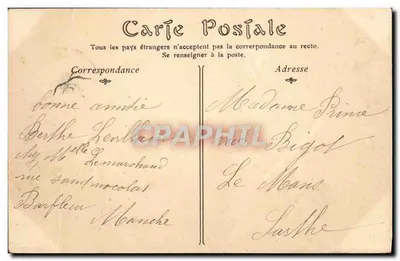 Carte Postale
Tous les pays étrangers n'acceptent pas la correspondance au recto.
Se renseigner à la poste.
Correspondance
Adresse
bonne amitié
Berthe
chez Mlle Lemarchand
rue saint nocolas
Barfleur
Manche
Madame Prime
rue Bigot
Le Mans
Sarthe
CPAPHIL